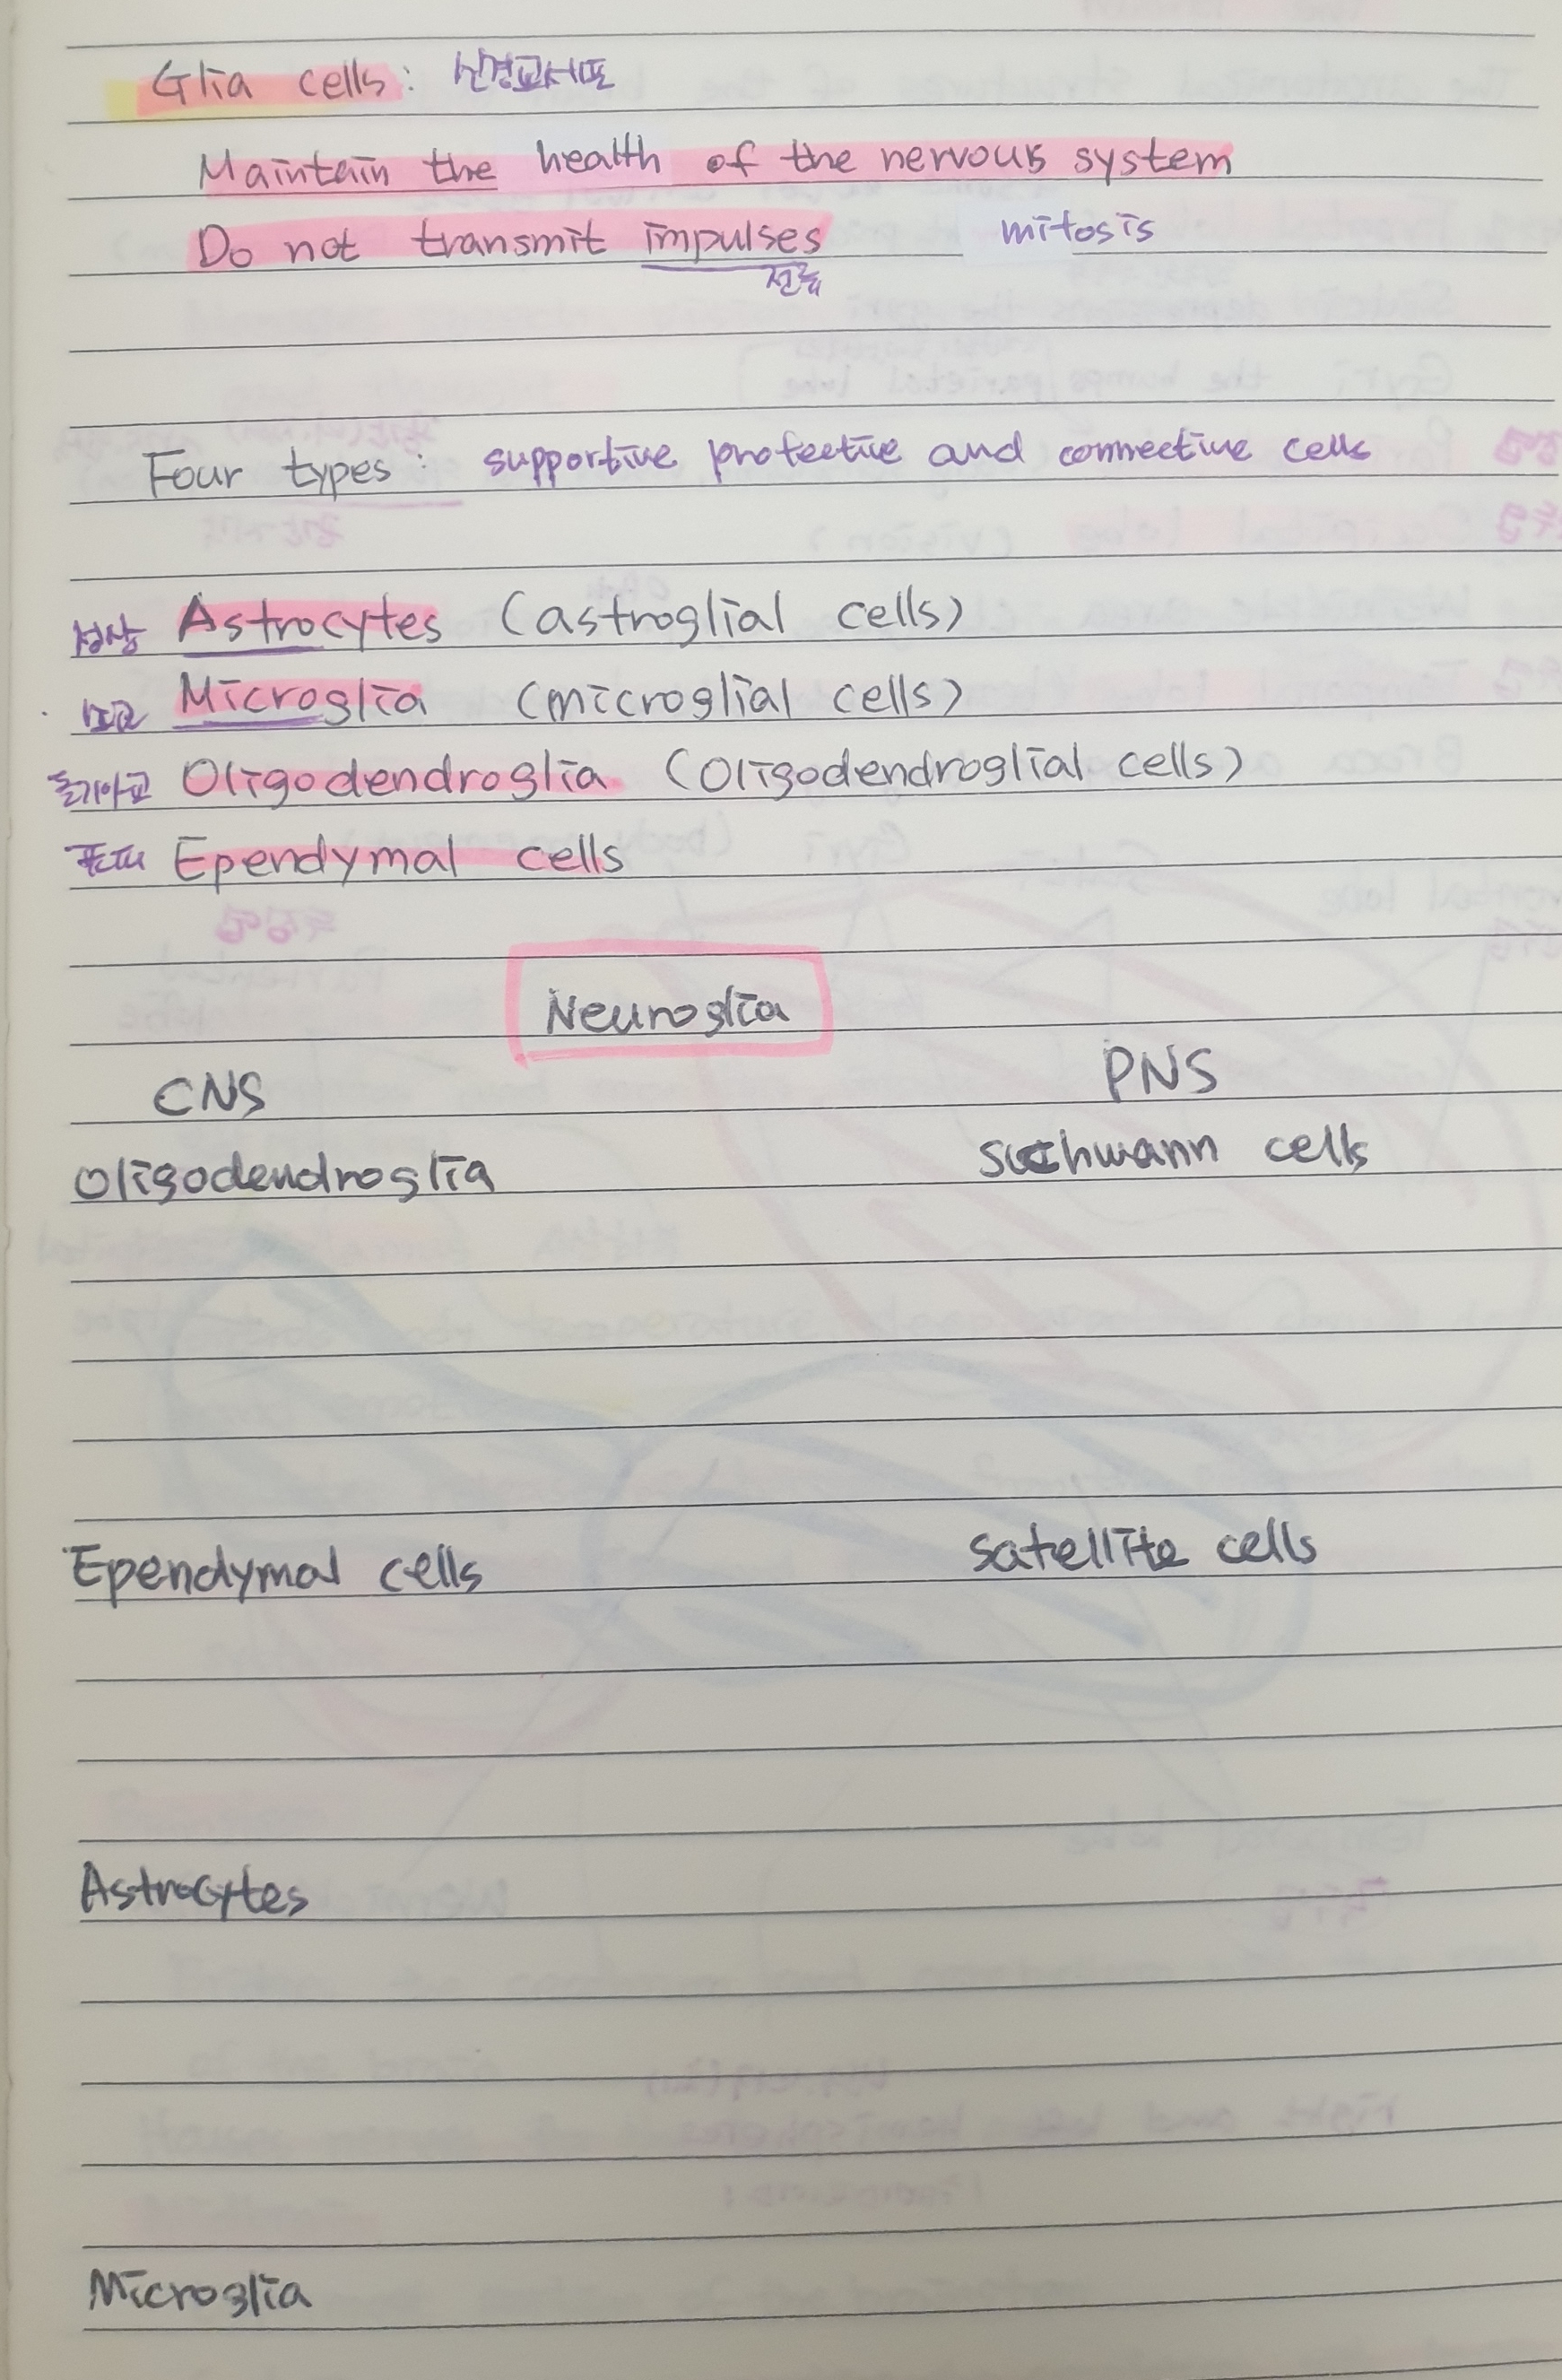 Glia cells: 신경교세포
Maintain the health of the nervous system
Do not transmit impulses mitosis
전류
Four types: supportive protective and connective cells
성상 Astrocytes (astroglial cells)
소교 Microglia (microglial cells)
돌기아교 Oligodendroglia (Oligodendroglial cells)
Ependymal cells
Neuroglia
CNS PNS
Oligodendroglia schwann cells
Ependymal cells satellite cells
Astrocytes
Microglia